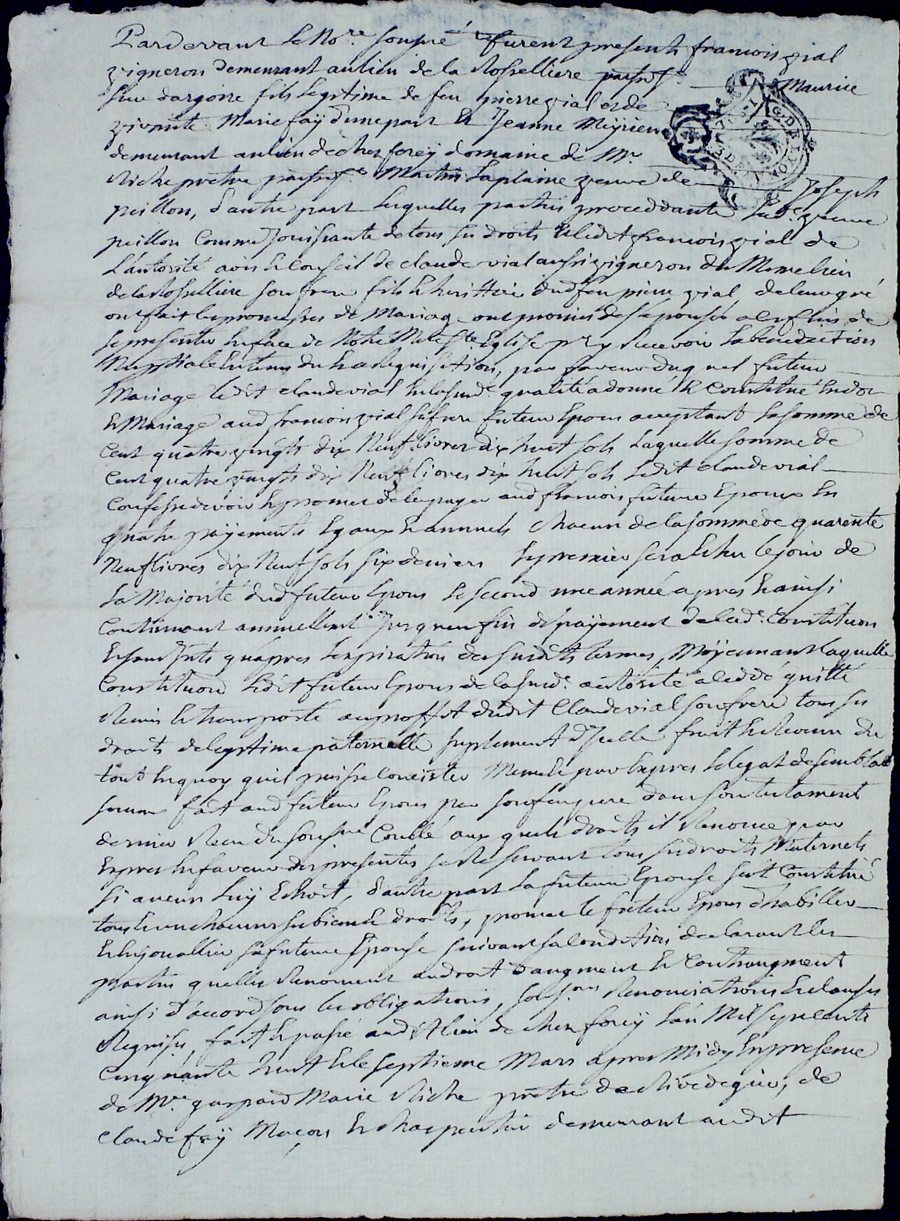 Pardevant le No.re sousné furent presents francois vial
vigneron demeurant au lieu de la Rosselliere parroisse Maurice
sur dargoire fils legitime de feu pierre vial et de
vivante Marie faÿ d'une part Et Jeanne Meÿrieu
demeurant au lieu de chez foreÿ domaine de Mr
Riche prêtre parroisse Martin Laplaine veuve de Joseph
peillon, d'autre part lesquelles parties proceddante lad. veuve
peillon comme Jouissante de tous ses droits Et ledt francois vial de
L'autorité avis et conseil de claude vial aussi vigneron du Meme lieu
de la Rosselliere son frere fils et heritier dud feu pierre vial, de leur gré
ont fait les promesses de Mariage ont promis de se epouser a ces fins de
se presenter En face de Notre Mere Ste Eglise pr y recevoir la benediction
Nuptiale En tems du Et a requisition, par faveur duquel futur
Mariage ledit claude vial En la susd. qualité a donné Et constitué En dot
Et Mariage aud francois vial son frere futur Epoux acceptant la somme de
Cent quatre vingts dix Neuf livres dix huit sols laquelle somme de
Cent quatre vingts dix Neuf livres dix huit sols ledit claude vial
confesse devoir Et promet de la payer aud francois futur Epoux En
quatre payements Egaux Et annuels chacun de la somme de quarente
Neuf livres dix Neuf sols six deniers le premier sera Echu le jour de
La Majorité dud futur Epoux le second une année apres Et ainsi
Continuant annuellemt Jusques a fin de payement de lad. Constitution
Et sans Interets qu'apres l'expiration des susdits termes, Moÿennant laquelle
Constitution ledit futur Epoux de la susd. autorité a cedé quitté
Remis Et transporté au proffit dudit Claude vial son frere tous ses
droits de legitime paternelle suplement d'Icelle fruits Et Revenus du
tout En quoy qu'il puisse consister Meme par Exprés le legat de semblable
somme fait aud futur Epoux par son feu pere dans son testament
dernier Receu du sousné Coullé aux quels droits il Renonce par
Exprés En faveur des presentes se Reservant tous ses droits Maternels
si aucun luÿ Echoit, d'autre part la future Epouse s'est Constitué
tous Et un chacun ses biens Et droits, promet le futur Epoux d'habiller
Et bijouallier sa future Epouse suivant sa condition declarant les
parties qu'elles Renoncent au droit d'augment Et Contraugment
ainsi d'accord sous les obligations, soumissions Renonciations Et clauses
Requises, fait Et passé aud Lieu de chez foreÿ l'an Mil sept cents
Cinquante huit Et le septieme Mars apres Midy En presence
de Mre gaspard Marie Riche prêtre de Rivedegier, de
claude faÿ Maçon Et charpentier demeurant audit